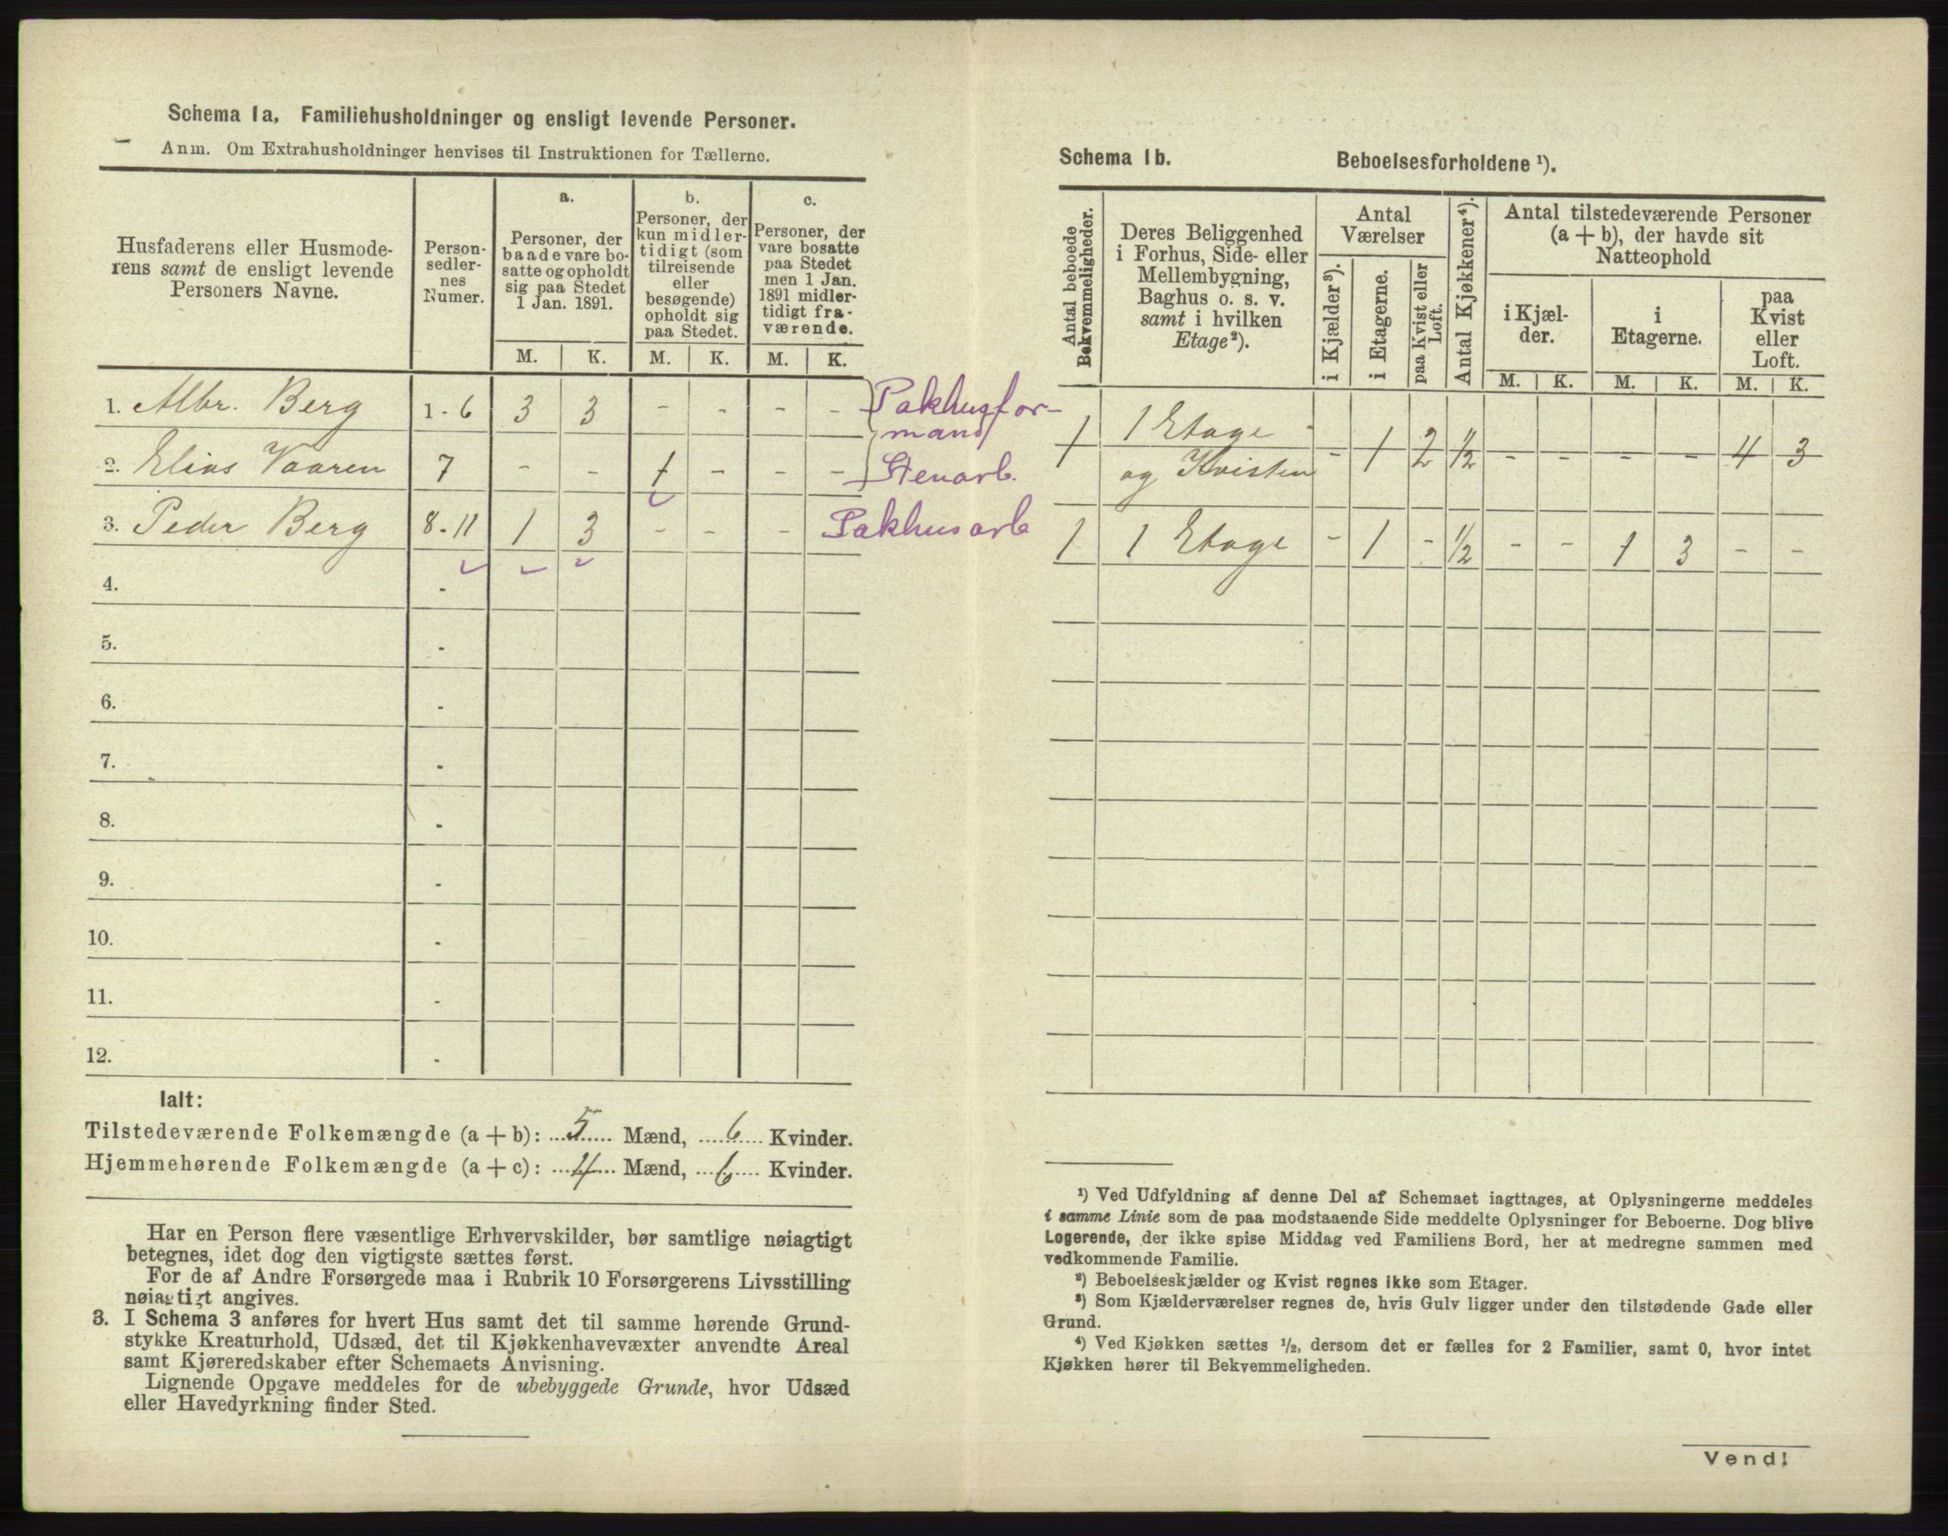 Schema 1a, Familiehusholdninger og ensligt levende Personer.
Anm. Om Extrahusholdninger henvises til Instruktionen for Tællerne.
Husfaderens eller Husmode-
rens samt de ensligt levende
Personers Navne.
Person-
sedler-
nes
Numer.
a.
Personer, der
baade vare bo-
satte og opholdt
sig paa Stedet
1 Jan. 1891.
M. K.
b.
Personer, der
kun midler-
tidigt (som
tilreisende
eller
besøgende)
opholdt sig
paa Stedet.
M. K.
c.
Personer, der
vare bosatte
paa Stedet
men 1 Jan.
1891 midler-
tidigt fra-
værende.
M. K.
1. Albr. Berg 1 - 6 3 3 - - - - Pakhusfor-
mand
2. Elias Vaaren 7 - - 1 - - - Stenarb.
3. Peder Berg 8 - 11 1 3 - - - Pakhusarb
4. -
5. -
6. -
7. -
8. -
9. -
10. -
11. -
12. -
Ialt:
Tilstedeværende Folkemængde (a + b): 5 Mænd, 6 Kvinder.
Hjemmehørende Folkemængde (a + c): 4 Mænd, 6 Kvinder.
Har en Person flere væsentlige Erhvervskilder, bør samtlige nøiagtigt
betegnes, idet dog den vigtigste sættes først.
For de af Andre Forsørgede maa i Rubrik 10 Forsørgerens Livsstilling
nøiagtigt angives.
3. I Schema 3 anføres for hvert Hus samt det til samme hørende Grund-
stykke Kreaturhold, Udsæd, det til Kjøkkenhavevæxter anvendte Areal
samt Kjøreredskaber efter Schemaets Anvisning.
Lignende Opgave meddeles for de ubebyggede Grunde, hvor Udsæd
eller Havedyrkning finder Sted.
Schema 1b. Beboelsesforholdene ¹).
Antal beboede
Bekvemmeligheder.
Deres Beliggenhed
i Forhus, Side- eller
Mellembygning,
Baghus o. s. v.
samt i hvilken
Etage²).
Antal
Værelser
i Kjælder³).
i Etagerne.
paa Kvist eller
Loft.
Antal Kjøkkener⁴).
Antal tilstedeværende Personer
(a + b), der havde sit
Natteophold
i Kjæl-
der.
M. K.
i
Etagerne.
M. K.
paa
Kvist
eller
Loft.
M. K.
1 1 Etage
og Kvisten - 1 2 ½ - - - - 4 3
1 1 Etage - 1 - ½ - - 1 3 - -
¹) Ved Udfyldning af denne Del af Schemaet iagttages, at Oplysningerne meddeles
i samme Linie som de paa modstaaende Side meddelte Oplysninger for Beboerne. Dog blive
Logerende, der ikke spise Middag ved Familiens Bord, her at medregne sammen med
vedkommende Familie.
²) Beboelseskjælder og Kvist regnes ikke som Etager.
³) Som Kjælderværelser regnes de, hvis Gulv ligger under den tilstødende Gade eller
Grund.
⁴) Ved Kjøkken sættes ½, dersom det er fælles for 2 Familier, samt 0, hvor intet
Kjøkken hører til Bekvemmeligheden.
Vend!